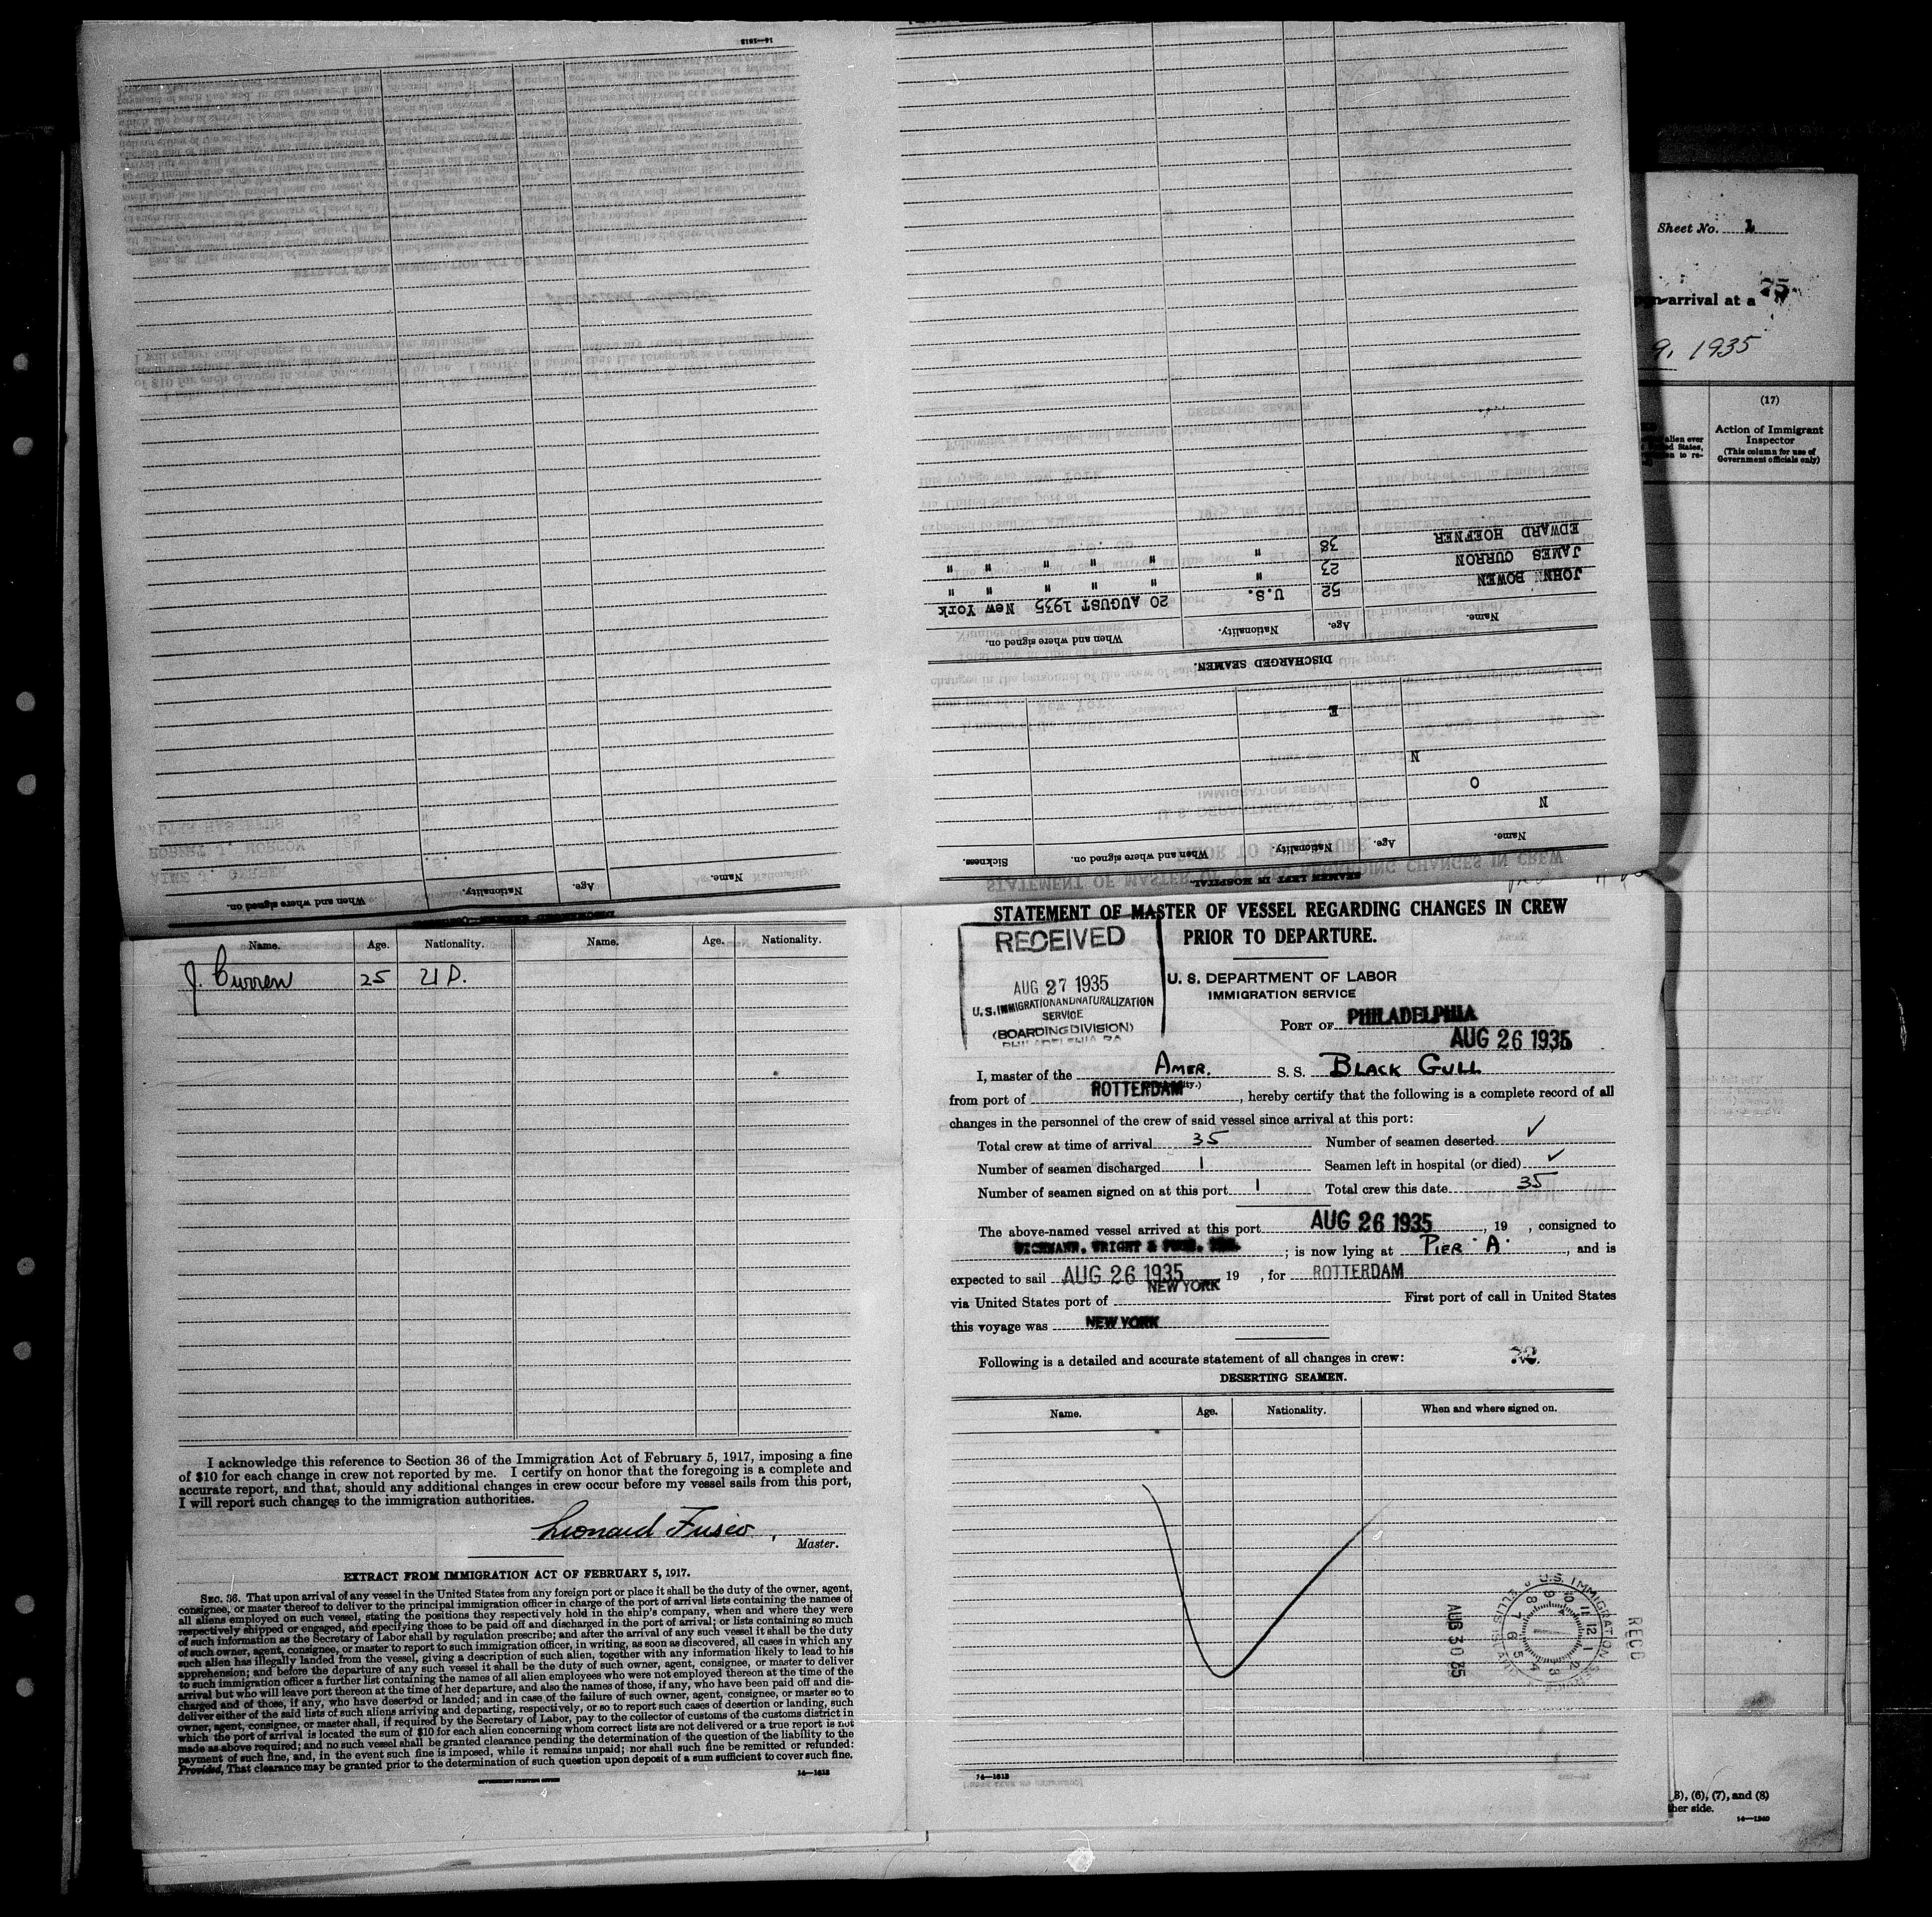 Sheet No. 1
arrival at a
75
9, 1935
(17)
alien ever
Action of Immigrant
Inspector
(This column for use of
Government officials only)
14—1813
EDWARD HOEFNER 38 " " " " " "
JAMES CURRON 23 " " " " " "
JOHN BOWEN 52 U.S. 20 AUGUST 1935 New York
Name. Age. Nationality. When and where signed on.
DISCHARGED SEAMEN.
E
N
O
N
Name. Age. Nationality. When and where signed on. Sickness.
SEAMEN LEFT IN HOSPITAL
Name. Age. Nationality. When and where signed on.
Name. Age. Nationality. Name. Age. Nationality.
J. Curren 25
I acknowledge this reference to Section 36 of the Immigration Act of February 5, 1917, imposing a fine
of $10 for each change in crew not reported by me. I certify on honor that the foregoing is a complete and
accurate report, and that, should any additional changes in crew occur before my vessel sails from this port,
I will report such changes to the immigration authorities.
Leonard Fusco,
Master.
EXTRACT FROM IMMIGRATION ACT OF FEBRUARY 5, 1917.
SEC. 36. That upon arrival of any vessel in the United States from any foreign port or place it shall be the duty of the owner, agent,
consignee, or master thereof to deliver to the principal immigration officer in charge of the port of arrival lists containing the names of
all aliens employed on such vessel, stating the positions they respectively hold in the ship's company, when and where they were
respectively shipped or engaged, and specifying those to be paid off and discharged in the port of arrival; or lists containing so much
of such information as the Secretary of Labor shall by regulation prescribe; and after the arrival of any such vessel it shall be the duty
of such owner, agent, consignee, or master to report to such immigration officer, in writing, as soon as discovered, all cases in which any
such alien has illegally landed from the vessel, giving a description of such alien, together with any information likely to lead to his
apprehension; and before the departure of any such vessel it shall be the duty of such owner, agent, consignee, or master to deliver
to such immigration officer a further list containing the names of all alien employees who were not employed thereon at the time of the
arrival but who will leave port thereon at the time of her departure, and also the names of those, if any, who have been paid off and dis-
charged and of those, if any, who have deserted or landed; and in case of the failure of such owner, agent, consignee, or master so to
deliver either of the said lists of such aliens arriving and departing, respectively, or so to report such cases of desertion or landing, such
owner, agent, consignee, or master shall, if required by the Secretary of Labor, pay to the collector of customs of the customs district in
which the port of arrival is located the sum of $10 for each alien concerning whom correct lists are not delivered or a true report is not
made as above required; and no such vessel shall be granted clearance pending the determination of the question of the liability to the
payment of such fine, and, in the event such fine is imposed, while it remains unpaid; nor shall such fine be remitted or refunded:
Provided, That clearance may be granted prior to the determination of such question upon deposit of a sum sufficient to cover such fine.
GOVERNMENT PRINTING OFFICE
14—1813
STATEMENT OF MASTER OF VESSEL REGARDING CHANGES IN CREW
PRIOR TO DEPARTURE.
RECEIVED
AUG 27 1935
U.S. IMMIGRATION AND NATURALIZATION
SERVICE
(BOARDING DIVISION)
PHILADELPHIA PA
U. S. DEPARTMENT OF LABOR
IMMIGRATION SERVICE
PORT OF PHILADELPHIA
AUG 26 1935
I, master of the AMER. S. S. BLACK GULL
from port of ROTTERDAM, hereby certify that the following is a complete record of all
changes in the personnel of the crew of said vessel since arrival at this port:
Total crew at time of arrival 35 Number of seamen deserted ✓
Number of seamen discharged 1 Seamen left in hospital (or died) ✓
Number of seamen signed on at this port 1 Total crew this date 35
The above-named vessel arrived at this port AUG 26 1935, 19 , consigned to
; is now lying at PIER "A", and is
expected to sail AUG 26 1935, 19 , for ROTTERDAM
via United States port of NEW YORK First port of call in United States
this voyage was NEW YORK
Following is a detailed and accurate statement of all changes in crew:
72.
DESERTING SEAMEN.
Name. Age. Nationality. When and where signed on.
14—1813
REC'D
U.S. IMMIGRATION SERVICE
ELLIS ISLAND
AUG 30 35
(6), (7), and (8)
14—1240